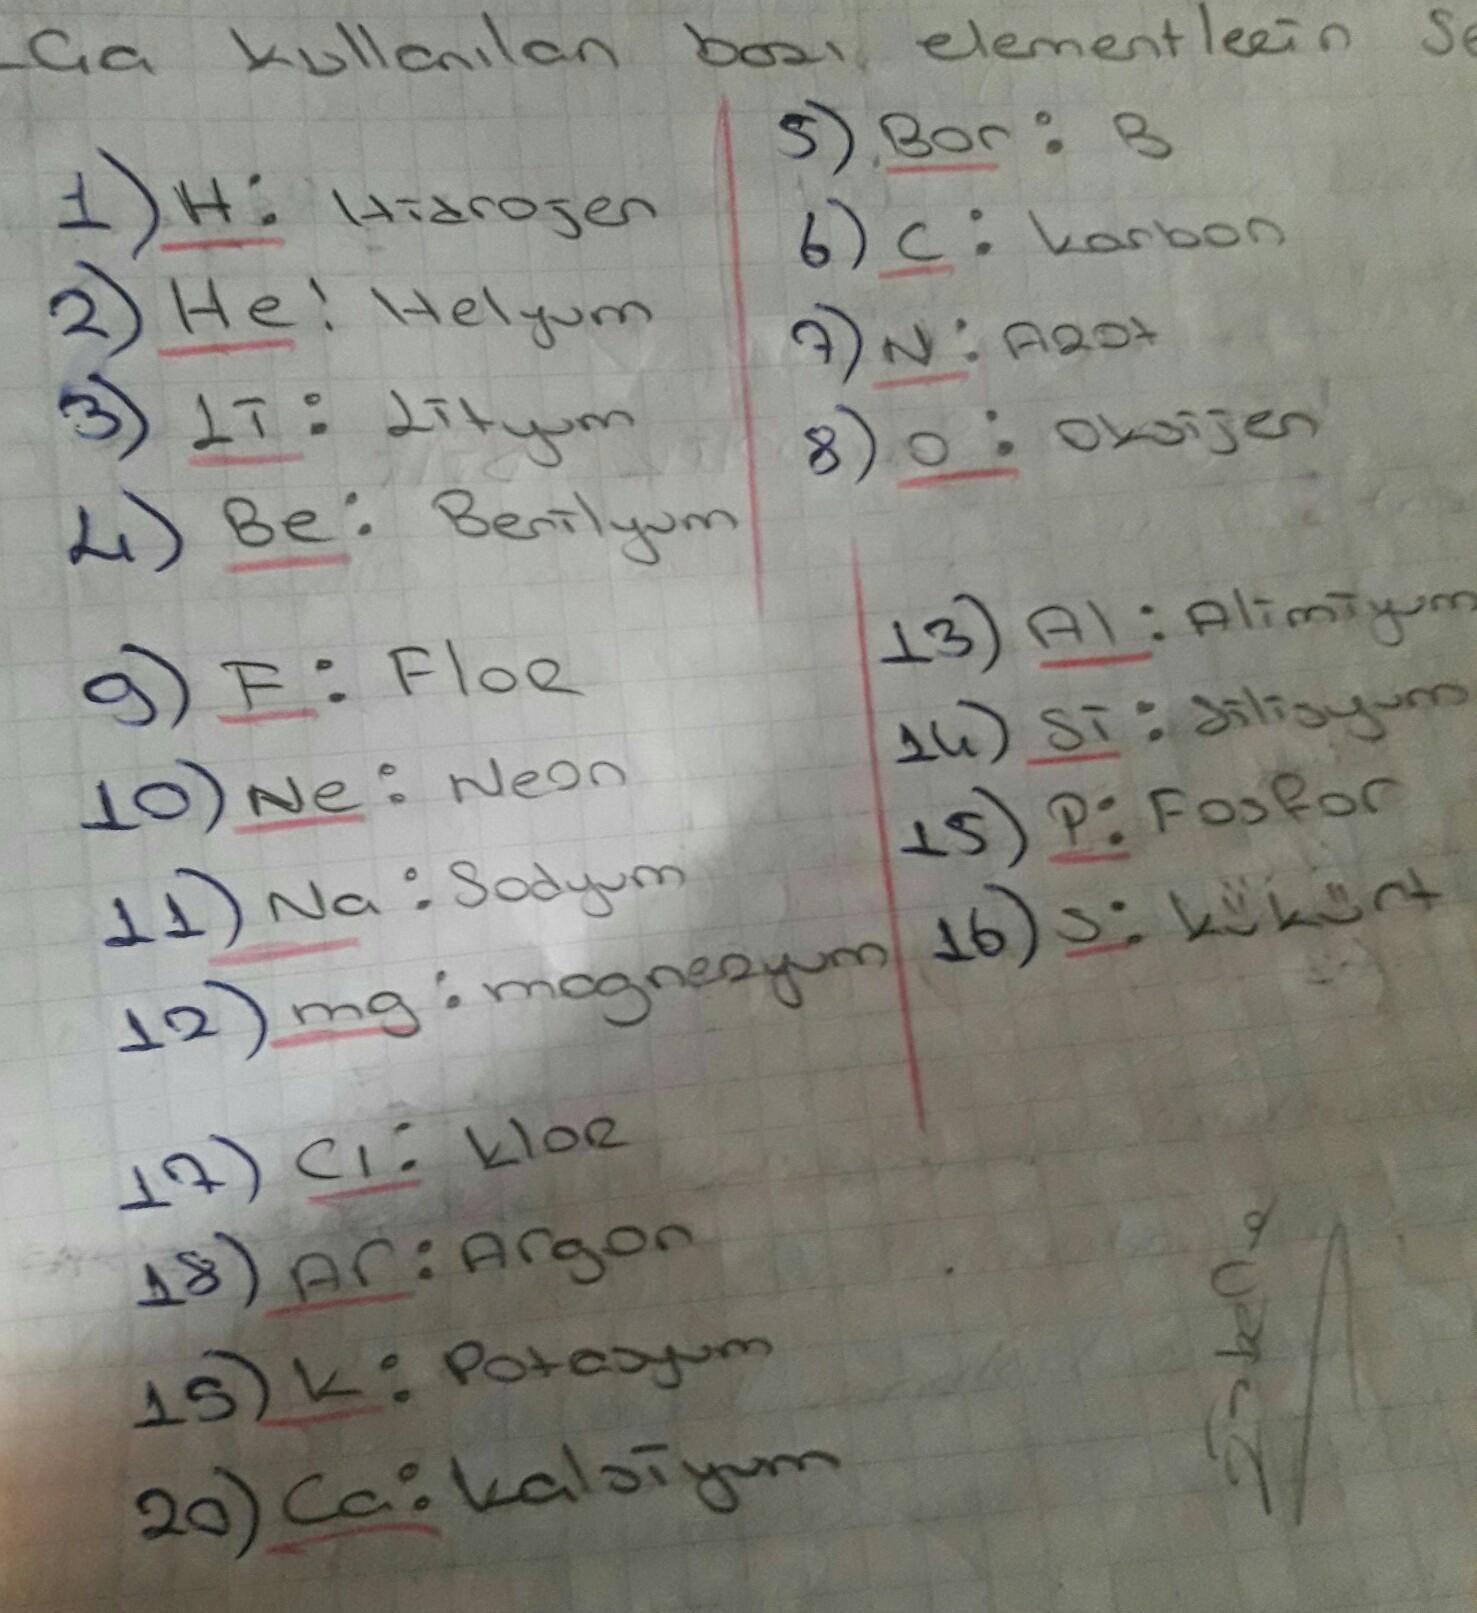 Ca kullanılan bazı elementlerin Se
1) H: Hidrojen
2) He: Helyum
3) Li: Lityum
4) Be: Berilyum
5) Bor: B
6) C: karbon
7) N: Azot
8) O: Oksijen
9) F: Flor
10) Ne: Neon
11) Na: Sodyum
12) mg: magnezyum
13) Al: Alimiyum
14) Si: Silisyum
15) P: Fosfor
16) S: kükürt
17) Cl: klor
18) Ar: Argon
19) K: Potasyum
20) Ca: kalsiyum